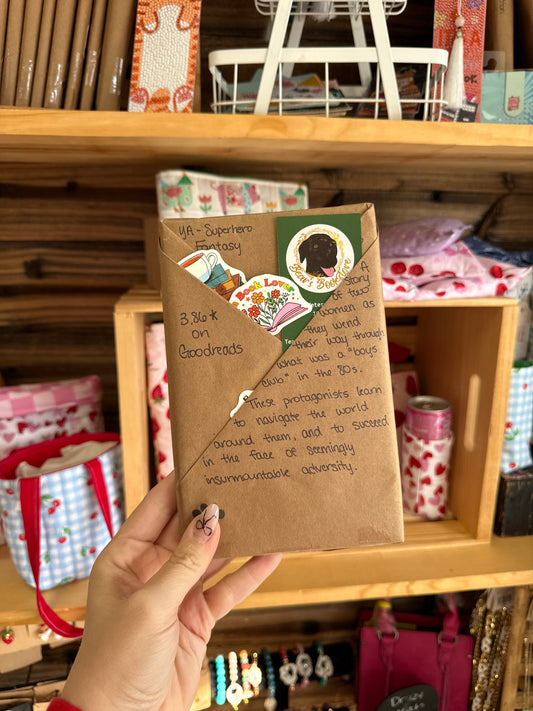 YA - Superhero
Fantasy
3.86★
on
Goodreads
Book Lover
Bear's Bookstore
A
story
of two
women as
they wend
their way through
what was a "boys
club" in the 80s.
These protagonists learn
to navigate the world
around them, and to succeed
in the face of seemingly
insurmountable adversity.